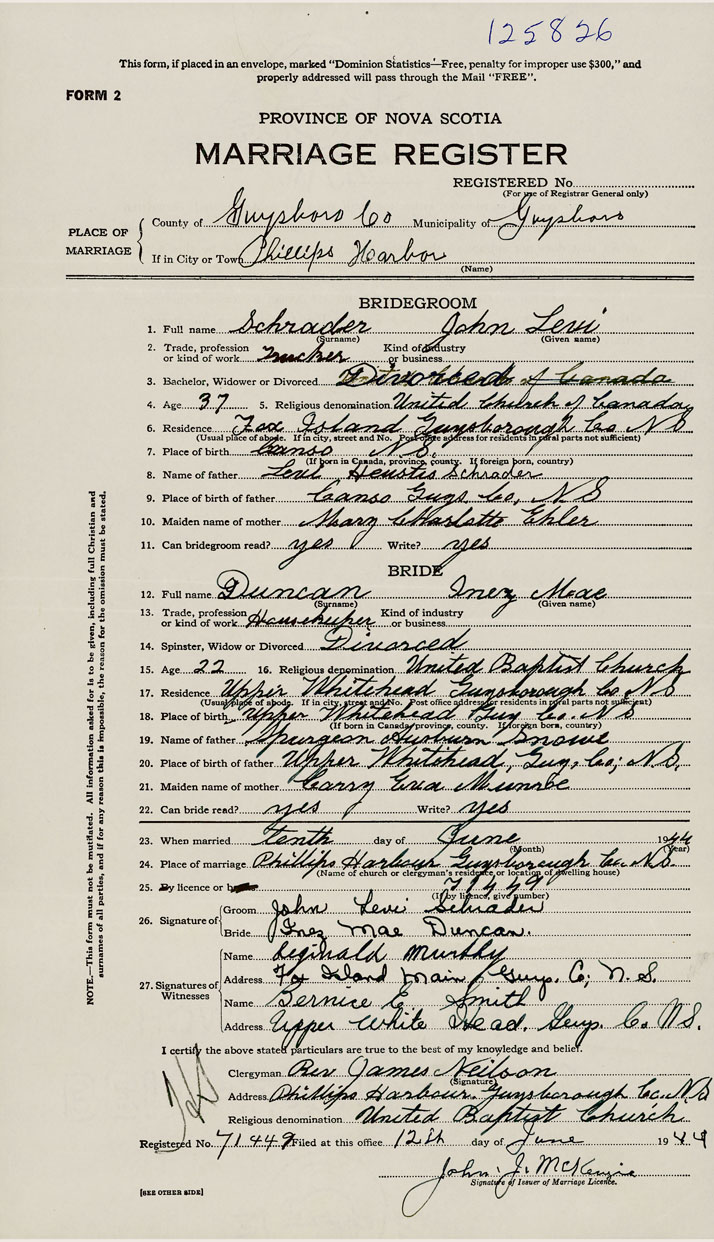 125826
This form, if placed in an envelope, marked "Dominion Statistics—Free, penalty for improper use $300," and
properly addressed will pass through the Mail "FREE".
FORM 2
PROVINCE OF NOVA SCOTIA
MARRIAGE REGISTER
REGISTERED No.
(For use of Registrar General only)
PLACE OF MARRIAGE
County of Guysboro Co Municipality of Guysboro
If in City or Town Phillips Harbor
(Name)
BRIDEGROOM
1. Full name Schrader John Levi
(Surname) (Given name)
2. Trade, profession or kind of work Kind of industry or business
3. Bachelor, Widower or Divorced Divorced of Canada
4. Age 37 5. Religious denomination United Church of Canada
6. Residence Fox Island Guysborough Co N S
(Usual place of abode. If in city, street and No. Post office address for residents in rural parts not sufficient)
7. Place of birth Canso N.S.
(If born in Canada, province, county. If foreign born, country)
8. Name of father Levi Heustis Schrader
9. Place of birth of father Canso Guys. Co, N S
10. Maiden name of mother Mary Charlotte Ehler
11. Can bridegroom read? yes Write? yes
BRIDE
12. Full name Duncan Inez Mae
(Surname) (Given name)
13. Trade, profession or kind of work Housekeeper Kind of industry or business
14. Spinster, Widow or Divorced Divorced
15. Age 22 16. Religious denomination United Baptist Church
17. Residence Upper Whitehead Guysborough Co N S
(Usual place of abode. If in city, street and No. Post office address for residents in rural parts not sufficient)
18. Place of birth Upper Whitehead Guy Co. N S
(If born in Canada, province, county. If foreign born, country)
19. Name of father Spurgeon Snowe
20. Place of birth of father Upper Whitehead, Guy. Co; N.S.
21. Maiden name of mother Carry Munroe
22. Can bride read? yes Write? yes
23. When married tenth day of June 1944
(Month) (Year)
24. Place of marriage Phillips Harbour Guysborough Co. N.S.
(Name of church or clergyman's residence or location of dwelling house)
25. By licence or 71449
(If by licence, give number)
26. Signature of
Groom John Levi Schrader
Bride Inez Mae Duncan.
27. Signatures of Witnesses
Name Reginald Murphy
Address Fox Island Main, Guys. Co; N. S.
Name Bernice E. Smith
Address Upper White Head. Guys. Co. N S.
I certify the above stated particulars are true to the best of my knowledge and belief.
Clergyman Rev James Neilson
(Signature)
Address Phillips Harbour. Guysborough Co. N S
Religious denomination United Baptist Church
Registered No. 71449 Filed at this office 12th day of June 1944
John. J. McKenzie
Signature of Issuer of Marriage Licence.
[SEE OTHER SIDE]
NOTE.—This form must not be mutilated. All information asked for is to be given, including full Christian and
surnames of all parties, and if for any reason this is impossible, the reason for the omission must be stated.